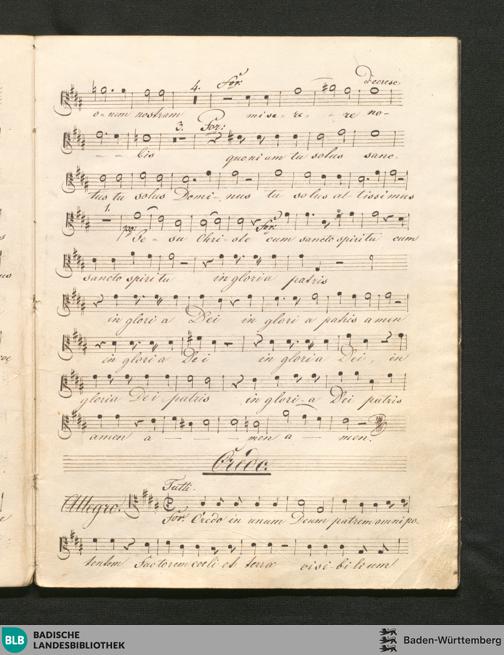 4. For. Decresc.
o - nem nostram mise - re - re no -
3. For:
- - bis quoniam tu solus sanc -
tus tu solus Domi - nus tu solus altissimus
1.
Je - su Chri - ste cum sancto spiritu cum
sancto spiritu in gloria patris
in glori a Dei in glori a patris amen
in glori a De i in glori a Dei, in
gloria Dei patris in glori - a Dei patris
amen a - - - men a - - men.
Credo.
Tutti.
Allegro.
For. Credo in unum Deum patrem omnipo -
tentem Factorem coeli et terrae visi bi li um
BLB BADISCHE LANDESBIBLIOTHEK
Baden-Württemberg